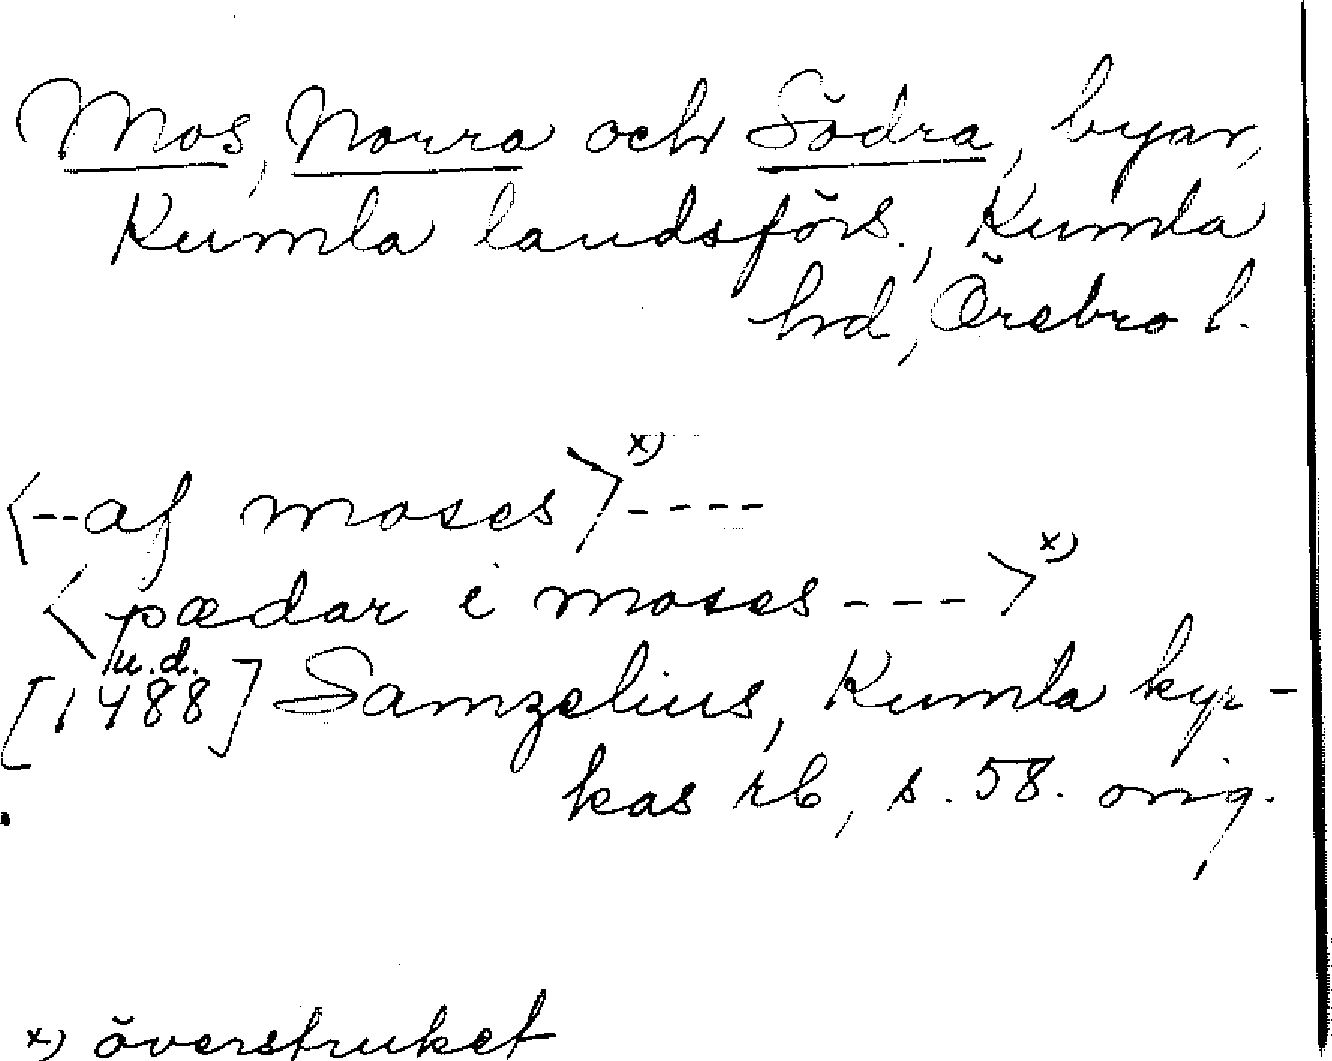 Mos, Norra och Södra, byar,
Kumla landsförs., Kumla
hd, Örebro l.
<--af moses>x)----
<pædar i moses--->x)
u.d.
[1488] Samzelius, Kumla kyr-
kas rb, s. 58. orig.
x) överstruket